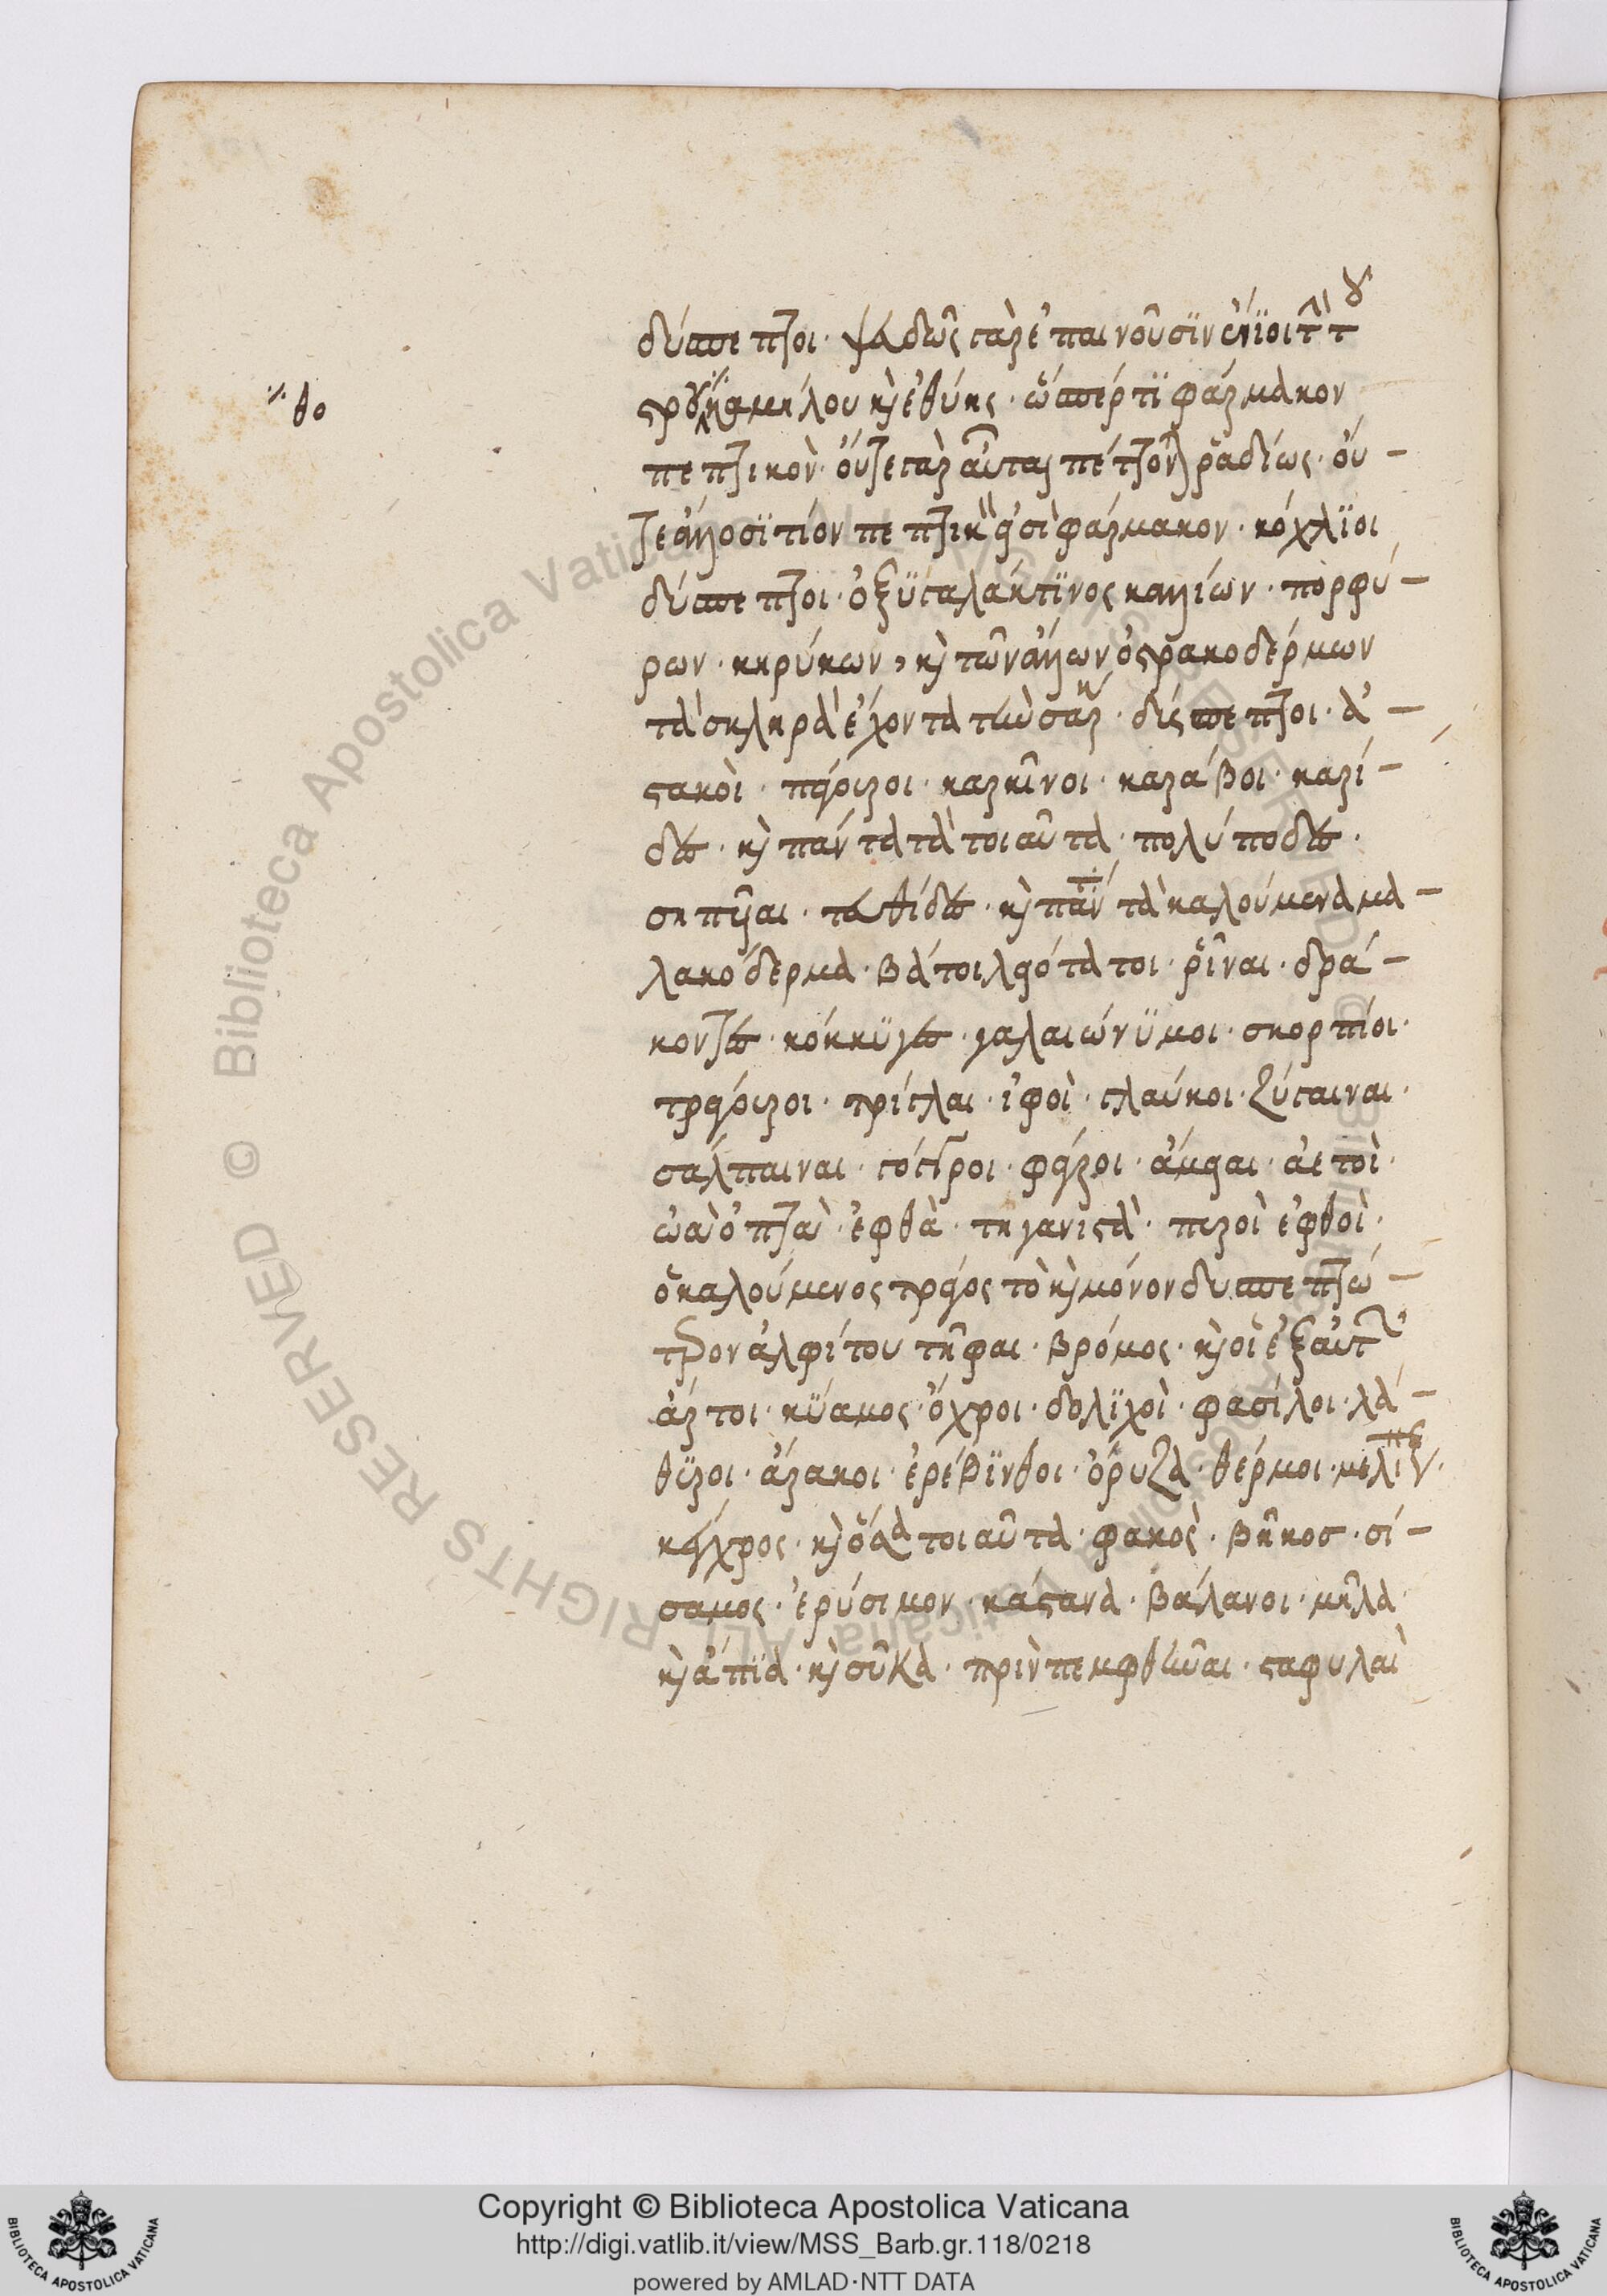 δύσπεπτοι· ψαδῶς γὰρ ἐπαινοῦσιν ἔνϊοι τὴν τοῦ
στρουθοκαμήλου καὶ ἐθύης· ὥσπέρ τι φάρμακον
πεπτικόν· οὔτε γὰρ αὗται πέττονται ῥαδίως· οὔ-
τε ἄλλο σϊτίον πεπτικὰ εἰσὶ φάρμακον· κόχλϊοι
δύσπεπτοι· ὀξύγαλάκτϊνος πορφύ-
ρων· κηρύκων, καὶ τῶν ἄλλων ὀστρακοδέρμων
τὰ σκληρὰ ἔχοντα τὴν σάρκα· δύσπεπτοι· ἀ-
στακοὶ· πάγουροι· καρκῖνοι· κάραβοι· καρί-
δες· καὶ πάντα τὰ τοιαῦτα· πολύποδες·
σηπίαι· τευθίδες· καὶ πάντα τὰ καλούμενα μα-
λακόδερμα· βάτοι λειόβατοι· ῥῖναι· δρά-
κοντες· κόκκϋγες· γαλαιώνϋμοι· σκορπίοι·
τράχουροι· τρίγλαι· ὀρφοὶ· γλαύκοι· ζύγαιναι·
σάλπαιναι· γόγγροι· φάγροι· λάμιαι· ἀετοὶ·
ὠὰ ὀπτὰ· ἑφθὰ· τηγανιστὰ· πυροὶ ἑφθοὶ·
ὁ καλούμενος τράγος τὸ καὶ μόνον δυσπεπτώ-
τερον ἀλφίτου τῆφαι· βρόμος· καὶ οἱ ἐξ αὐτοῦ
ἄρτοι· κϋαμος· ὄχροι· δολϊχοὶ· φασίλοι· λά-
θϋροι· ἄρακοι· ἐρέβϊνθοι· ὄρυζα· θέρμοι· μελίνης·
κέγχρος· καὶ ὅσα τοιαῦτα· φακὸς· βῆκοσ· σί-
σαμος· ἐρύσιμον· κάστανα· βάλανοι· μῆλα·
καὶ ἄπϊα· καὶ σῦκα· πρὶν πεμφθῆναι· σταφυλαὶ
θο
Copyright © Biblioteca Apostolica Vaticana
http://digi.vatlib.it/view/MSS_Barb.gr.118/0218
powered by AMLAD·NTT DATA
BIBLIOTECA APOSTOLICA VATICANA
BIBLIOTECA APOSTOLICA VATICANA